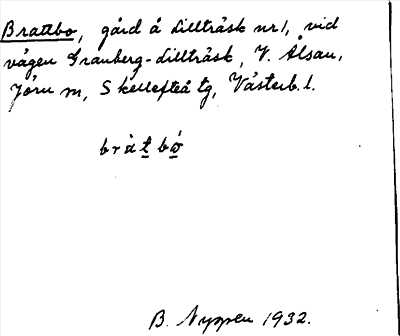 Brattbo, gård å Lillträsk nr 1, vid
vägen Granberg-Lillträsk, V. Ålsån,
Jörn sn, Skellefteå tg, Västerb. l.
bràt bó
B. Nyppen 1932.